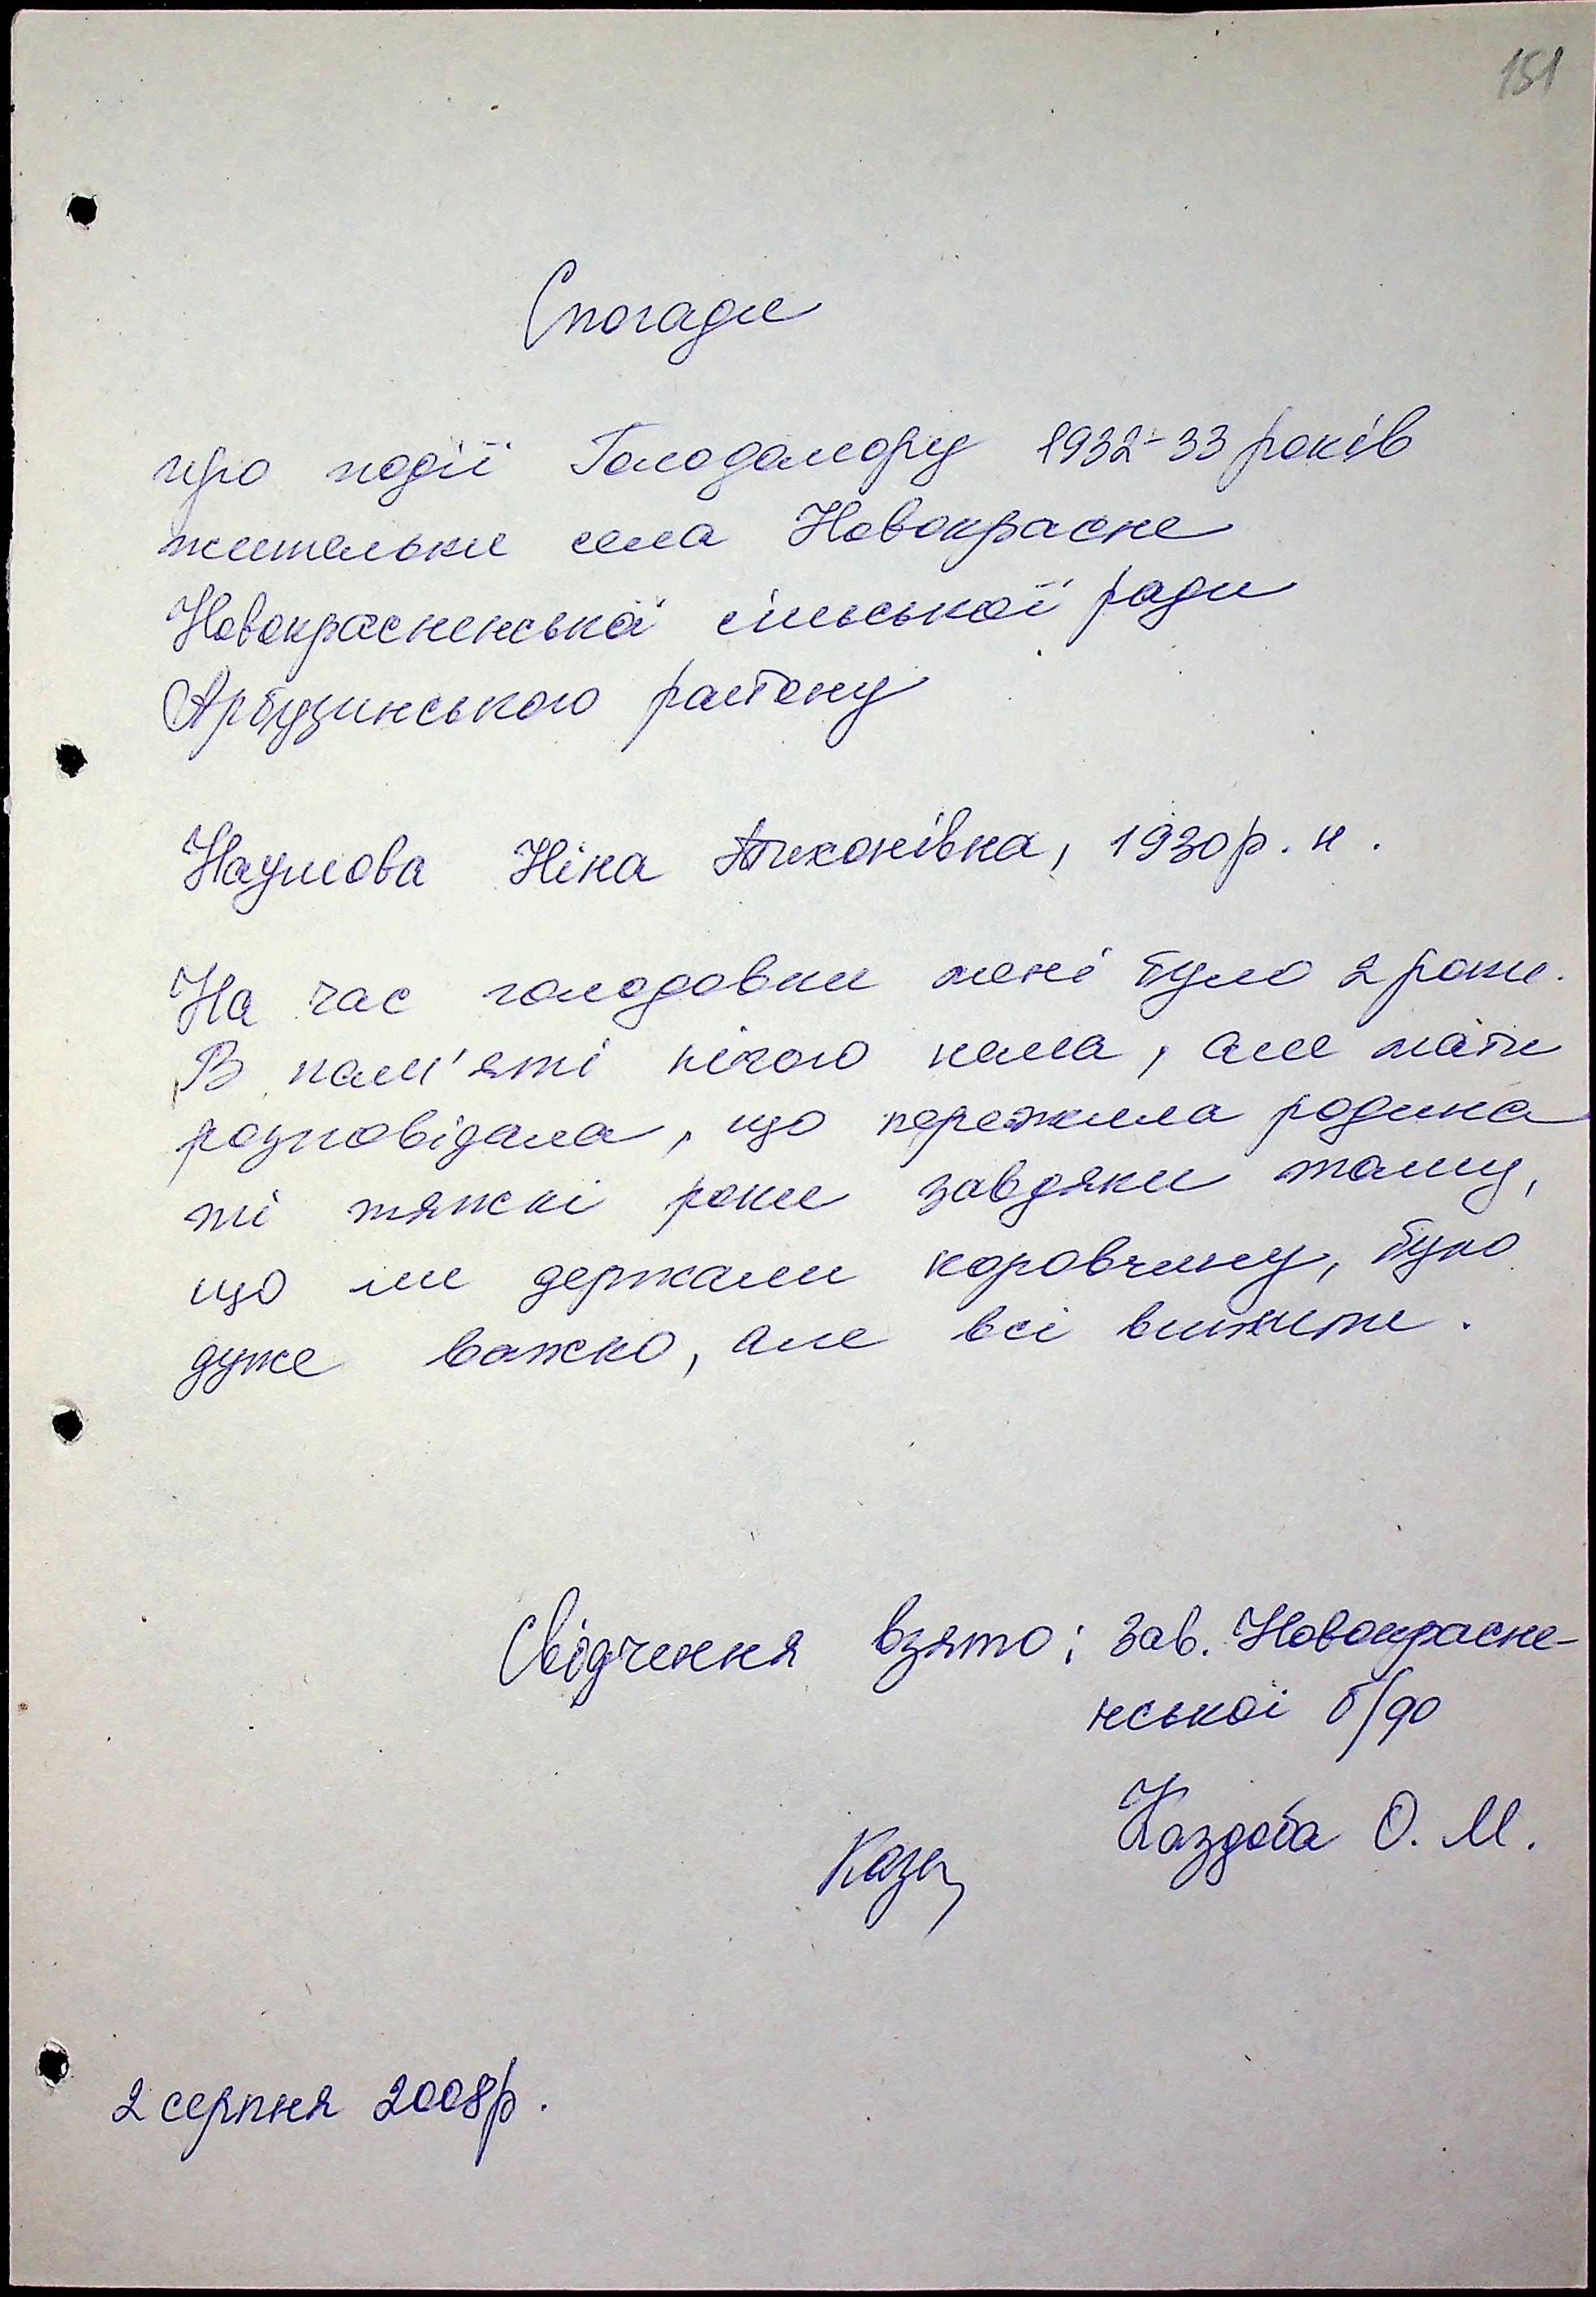 151
Спогади
про події Голодомору 1932-33 років
жительки села Новокрасне
Новокрасненської сільської ради
Арбузинського району
Наумова Ніна Тихонівна, 1930р. н.
На час голодовки мені було 2 роки.
В пам'яті нічого нема, але мати
розповідала, що пережила родина
ті тяжкі роки завдяки тому,
що ми держали коровчину, було
дуже важко, але всі вижили.
Свідчення взято: зав. Новокрасне-
нської б/до
Каздоба О. М.
2 серпня 2008р.